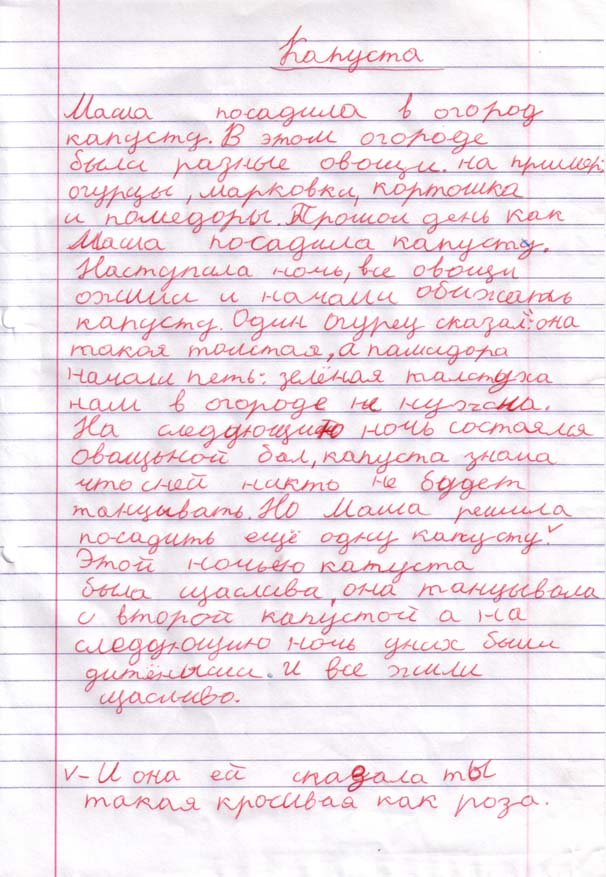 Капуста
Маша посадила в огород
капусту. В этом огороде
были разные овощи. на пример:
огурцы, марковка, кортошка
и помедоры. Прошол день как
Маша посадила капусту.
Наступила ночь, все овощи
ожили и начали обижать
капусту. Один огурец сказал: она
такая толстая, а памидора
начали петь: зелёная талстуха
нам в огороде не нужна.
На следующию ночь состоялся
оващьной бал, капуста знала
что сней никто не будет
танцывать. Но Маша решила
посадить ещё одну капусту. v
Этой ночью капуста
была щаслива, она танцывала
с второй капустой а на
следующию ночь уних были
дитёныши. и все жили
щасливо.
v - И она ей сказала ты
такая кросивая как роза.